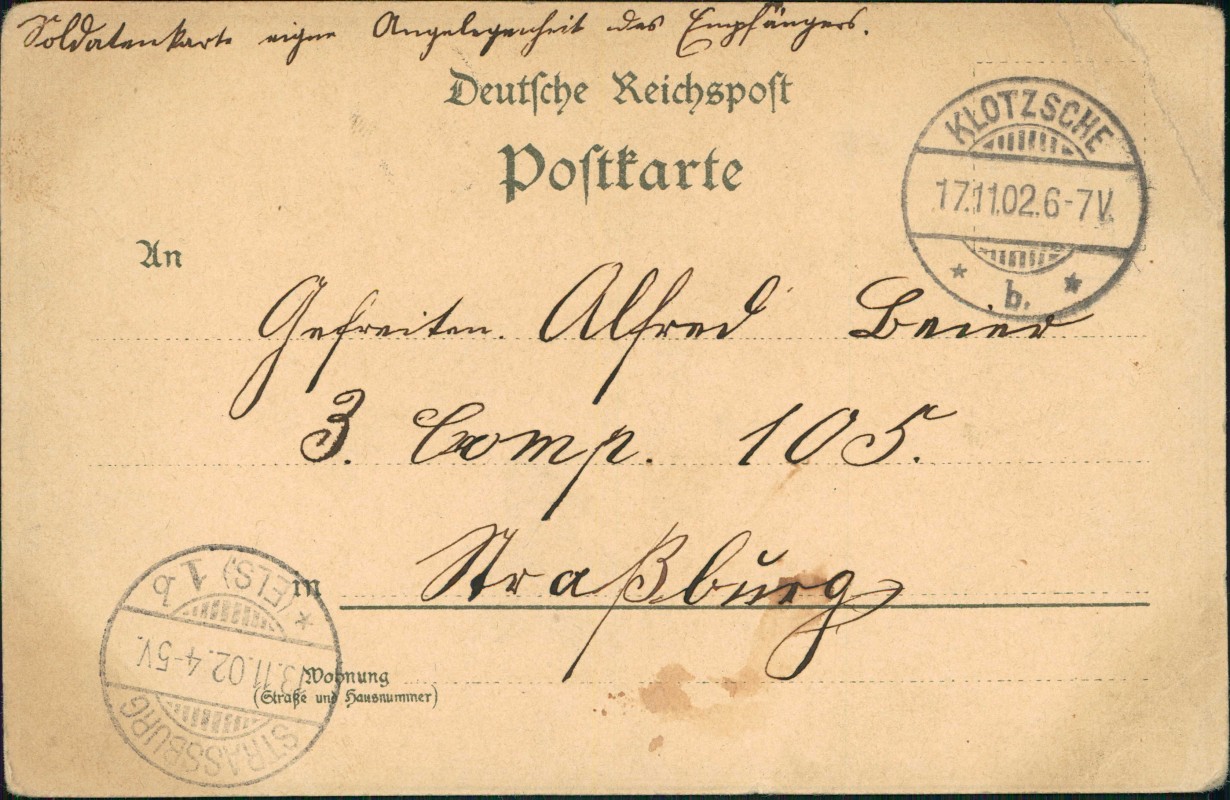 Soldatenkarte eigne Angelegenheit des Empfängers.
Deutsche Reichspost
Postkarte
KLOTZSCHE
17.11.02.6-7V.
* b. *
An
Gefreiten. Alfred Beier
3. Comp. 105.
in Straßburg
Wohnung
(Straße und Hausnummer)
STRASSBURG
11.02.4-5V.
* (ELS) 1 b